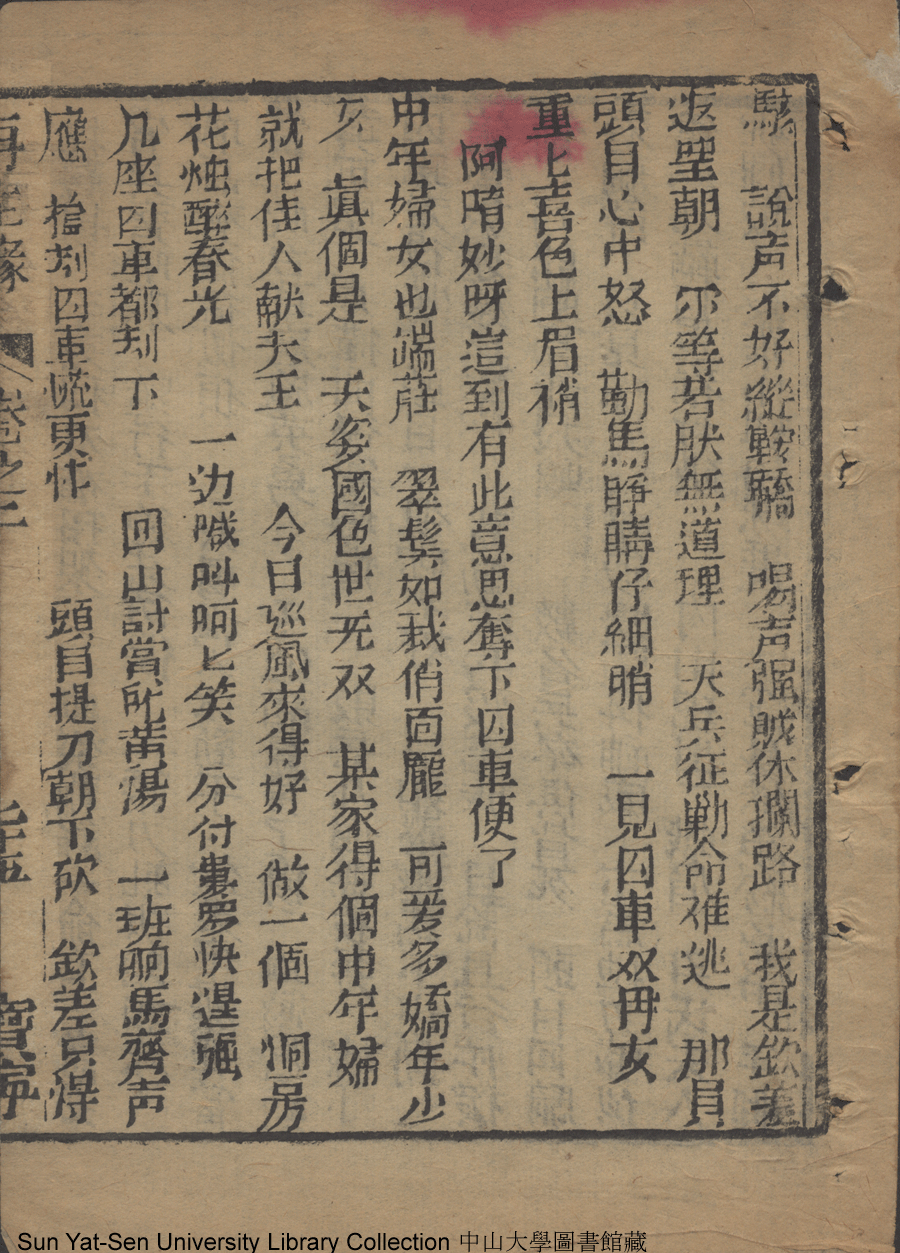 駭　說声不好縱鞍轎　喝声强賊休攔路　我是欽差
返里朝　尔等若肰無道理　天兵征勦命难逃　那員
頭目心中怒　勒馬睜睛仔細睄　一見囚車双毋女
重匕喜色上眉稍
阿唷妙呀這到有此意思奪下囚車便了
中年婦女也端庄　翠髩如裁俏面龐　可爰多嬌年少
女　眞個是　天姿國色世无双　某家得個中年婦
就把佳人献大王　今日巡風來得好　做一個　洞房
花烛醉春光　一边喊叫呵匕笑　分付婁罗快逞强
几座囚車都刦下　回山討賞所黄湯　一班响馬齊声
應　搶刦囚車慌更忙　頭目提刀朝下砍　欽差只得
再生緣　卷之二　七十五　寶寧
Sun Yat-Sen University Library Collection 中山大學圖書館藏